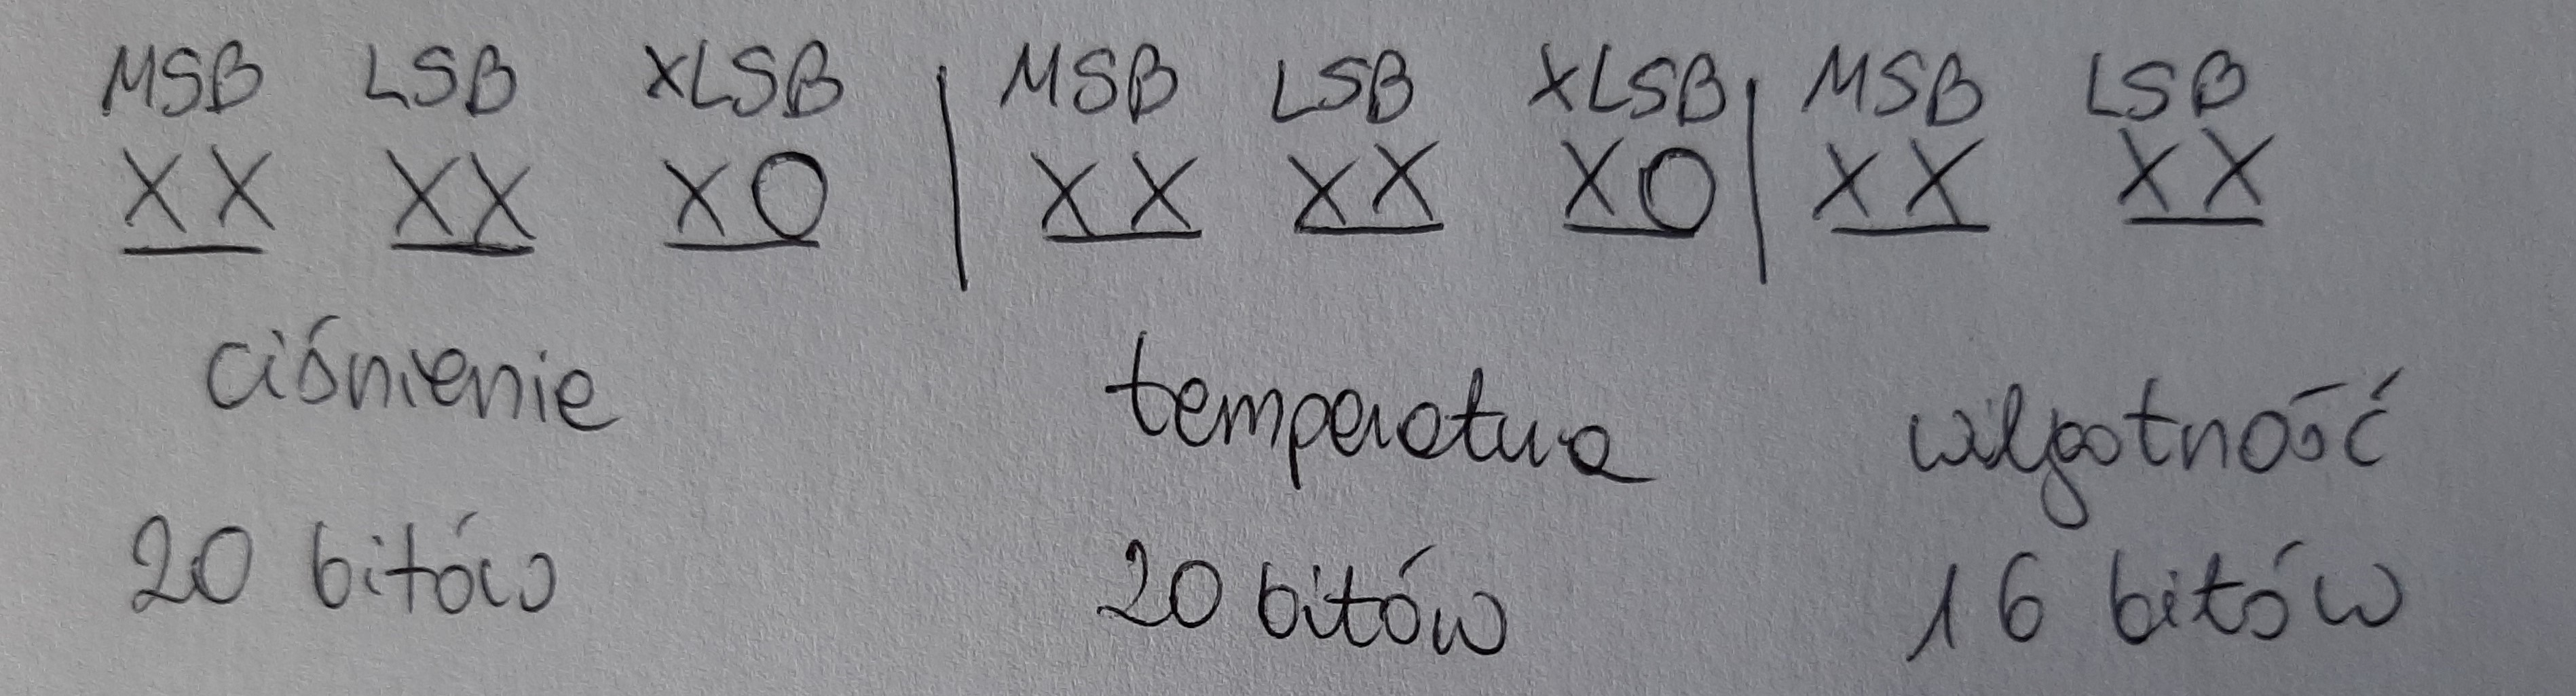 MSB LSB XLSB | MSB LSB XLSB | MSB LSB
XX XX X0 | XX XX X0 | XX XX
ciśnienie temperatura wilgotność
20 bitów 20 bitów 16 bitów